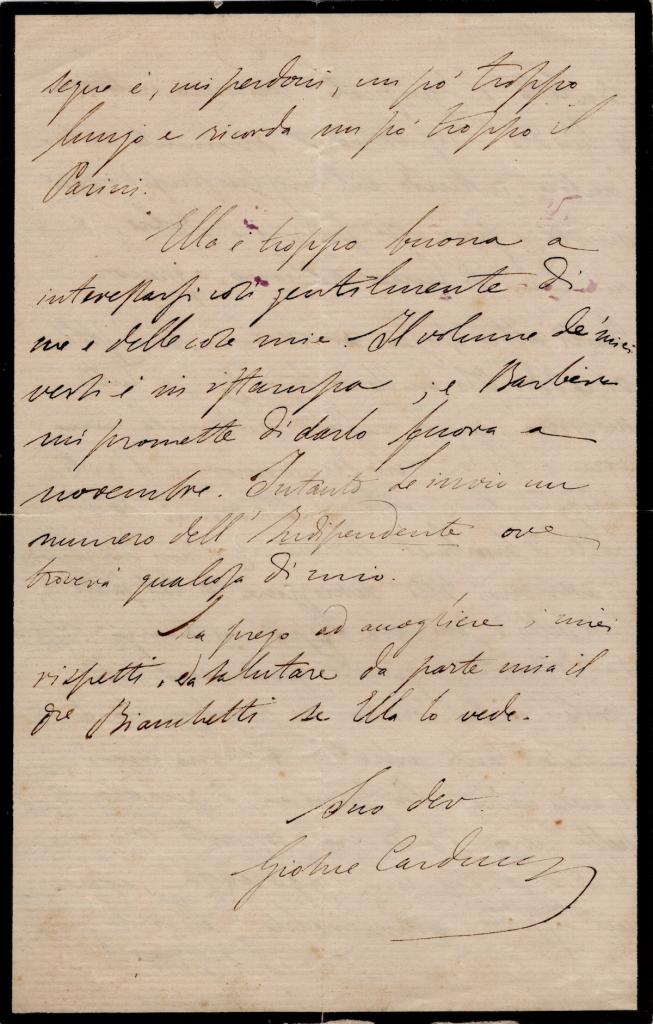 segue è, mi perdoni, un po' troppo
lungo e ricorda un po' troppo il
Parini.
Ella è troppo buona a
interessarsi così gentilmente di
me e delle cose mie. Il volume de' miei
versi è in istampa ; e Barbèra
mi promette di darlo fuora a
novembre. Intanto Le invio un
numero dell'Indipendente ove
troverà qualcosa di mio.
La prego ad accogliere i miei
rispetti, e a salutare da parte mia il
Bianchetti se Ella lo vede.
Suo dev.
Giosue Carducci